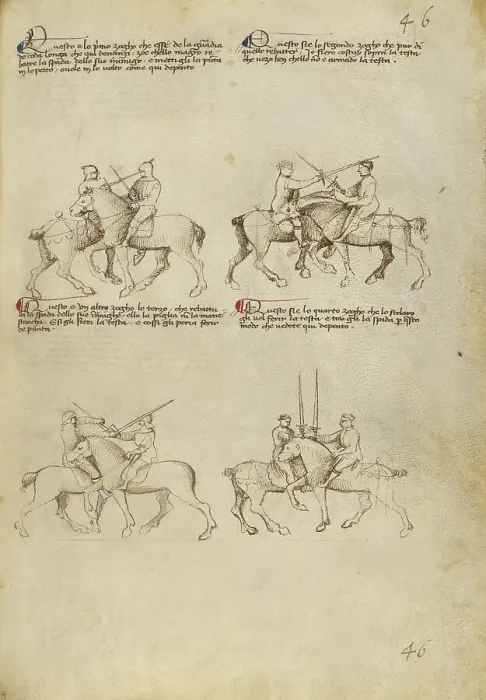 46
Questo e lo primo zogho che esse de la guardia
de coda longa che qui denanzi. zoe che lo magro re
batte la spada dello suo inimigo. e metti gli la punta
in lo petto, o vole in lo volto come qui depento
Questo sie lo segondo zogho che pur di
quello rebatter. Io fiero costuy sopra la testa
che vezo ben che llo no e armado la testa.
Questo e un altro zogho lo terzo, che rebattu
da la spada dello suo inimigho. ello la piglia cum la mane
stancha. E si gli fieri la testa. e cossi gli poria ferir
de punta.
Questo sie lo quarto zogho che lo scolaro
gli vol ferir la testa e tor gli la spada p questo
modo che vedete qui depento.
46